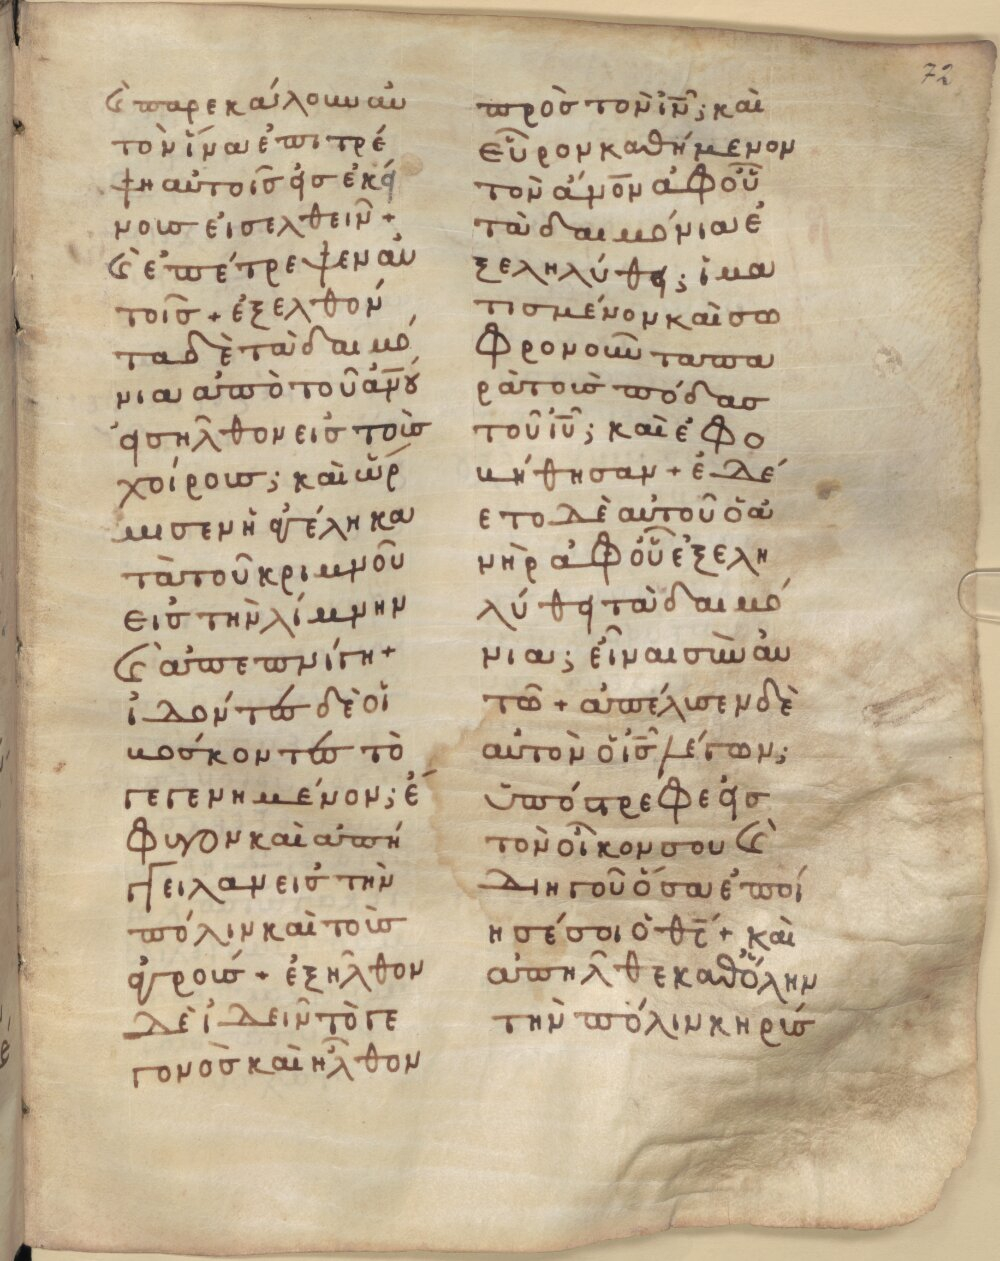 72
ϗ παρεκάλουν αὐ
τὸν ἵνα ἐπιτρέ
ψη αὐτοῖς εἰς ἐκεί
νους εἰσελθεῖν +
ϗ ἐπέτρεψεν αὐ
τοῖς + ἐξελθόν
τα δὲ τὰ δαιμό
νια ἀπὸ τοῦ ἀν̅ου
εἰσῆλθον εἰς τοὺς
χοίρους; καὶ ὥρ
μισεν ἡ ἀγέλη κα
τὰ τοῦ κριμνοῦ
εἰς τὴν λίμνην
ϗ ἀπεπνίγη +
ἰδόντες δὲ οἱ
βόσκοντες τὸ
γεγενημένον; ἔ
φυγον καὶ ἀπή
γγειλαν εἰς τὴν
πόλιν καὶ τοὺς
ἀγρούς + ἐξῆλθον
δὲ ἰδεῖν τὸ γε
γονὸς καὶ ἦλθον
πρὸς τὸν ιν̅; καὶ
εὗρον καθήμενον
τὸν ἄνο̅ν ἀφ οὗ
τὰ δαιμόνια ἐ
ξεληλύθει; ἱμα
τισμένον καὶ σω
φρονοῦντα πα
ρὰ τοὺς πόδας
τοῦ ιυ̅; καὶ ἐφο
βήθησαν + ἐδέ
ετο δὲ αὐτοῦ ὁ ἀ
νὴρ ἀφ οὗ ἐξελη
λύθει τὰ δαιμό
νια; εἶναι σὺν αὐ
τῶ + ἀπέλυσεν δὲ
αὐτὸν ὁ ις̅ λέγων;
ὑπόστρεφε εἰς
τὸν οἶκον σου ϗ
διηγοῦ ὅσα ἐποί
ησέ σοι ὁ θς̅ + καὶ
ἀπῆλθε καθ ὅλην
τὴν πόλιν κηρύς